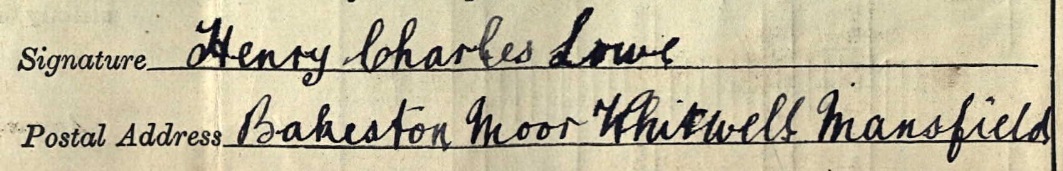 Signature Henry Charles Lowe
Postal Address Bakeston Moor Whitwell Mansfield